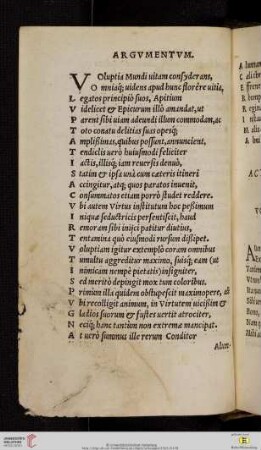 ARGVMENTVM.
VOluptia Mundi uitam consyderans,
Omnisq; uidens apud hunc florêre uitia,
Legatos principiò suos, Apitium
Videlicet & Epicurum illò amandat, ut
Parent sibi uiam adeundi illum commodam, ac
Toto conatu delitias suas opesq;
Amplissimas, quibus possunt, annuncient.
Tendiclis uerò huiusmodi feliciter
Iactis, illisq; iam reuersis denuò,
Statim & ipsa unà cum cæteris itineri
Accingitur, atq; quos paratos inuenit,
Consummatos etiam porrò studet reddere.
Vbi autem Virtus institutum hoc pessimum
Iniquæ seductricis persentiscit, haud
Remoram sibi inijci patitur diutius,
Tentamina quò eiusmodi rursum dissipet.
Voluptiam igitur extemplò coram omnibus
Tumultu aggreditur maximo, suisq; eam (ut
Inimicam nempè pietatis) insigniter,
Sed meritò depingit mox tum coloribus.
Primùm illa quidem obstupescit maximopere, ast
Vbi recolligit animum, in Virtutem uicissim &
Gladios suorum & fustes uertit atrociter,
Neciq; hanc tantùm non extremæ mancipat.
At uerò summus ille rerum Conditor